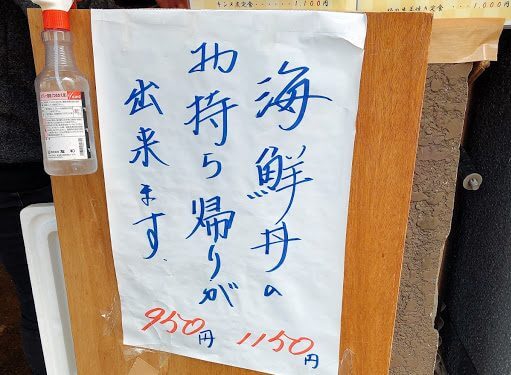 海鮮丼の
お持ち帰りが
出来ます.
950円
1150円
定食 ・・・・・ 1,100円
定食 ・・・ 1,000円